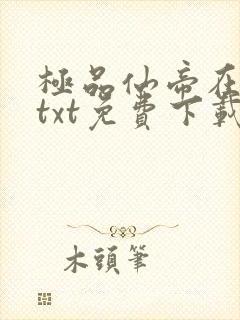 極品仙帝在
txt免費下載
木頭筆